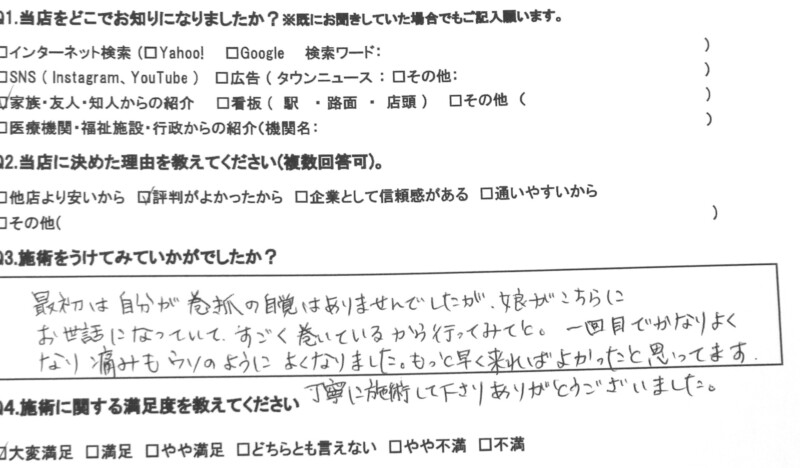 Q1.当店をどこでお知りになりましたか？※既にお聞きしていた場合でもご記入願います。
□インターネット検索（□Yahoo!　□Google　検索ワード：　）
□SNS（Instagram、YouTube）　□広告（タウンニュース：□その他：　）
☑家族・友人・知人からの紹介　□看板（駅・路面・店頭）　□その他（　）
□医療機関・福祉施設・行政からの紹介（機関名：　）
Q2.当店に決めた理由を教えてください（複数回答可）。
□他店より安いから　☑評判がよかったから　□企業として信頼感がある　□通いやすいから
□その他（　）
Q3.施術をうけてみていかがでしたか？
最初は自分が巻抓の自覚はありませんでしたが、娘がこちらに
お世話になっていて、すごく巻いているから行ってみてと。一回目でかなりよく
なり痛みもウソのようによくなりました。もっと早く来ればよかったと思ってます.
丁寧に施術して下さりありがとうございました。
Q4.施術に関する満足度を教えてください
☑大変満足　□満足　□やや満足　□どちらとも言えない　□やや不満　□不満